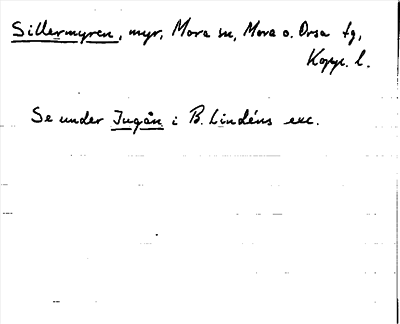 Sillermyren, myr, Mora sn, Mora o. Orsa tg,
Kopp. l.
Se under Jugån i B. Lindéns exc.